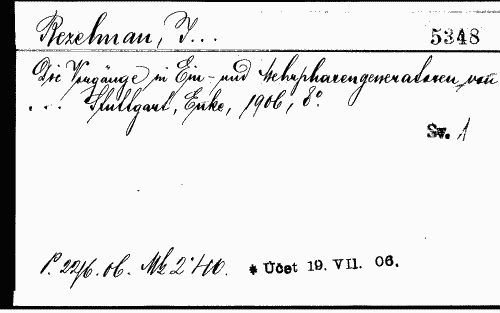 Rezelman, J...
5348
Die Vorgänge in Ein- und Mehrphasengeneratoren von
... Stuttgart, Enke, 1906, 8°.
Sv. 1
P. 22/6. 06. Mk 2·40. * Účet 19. VII. 06.